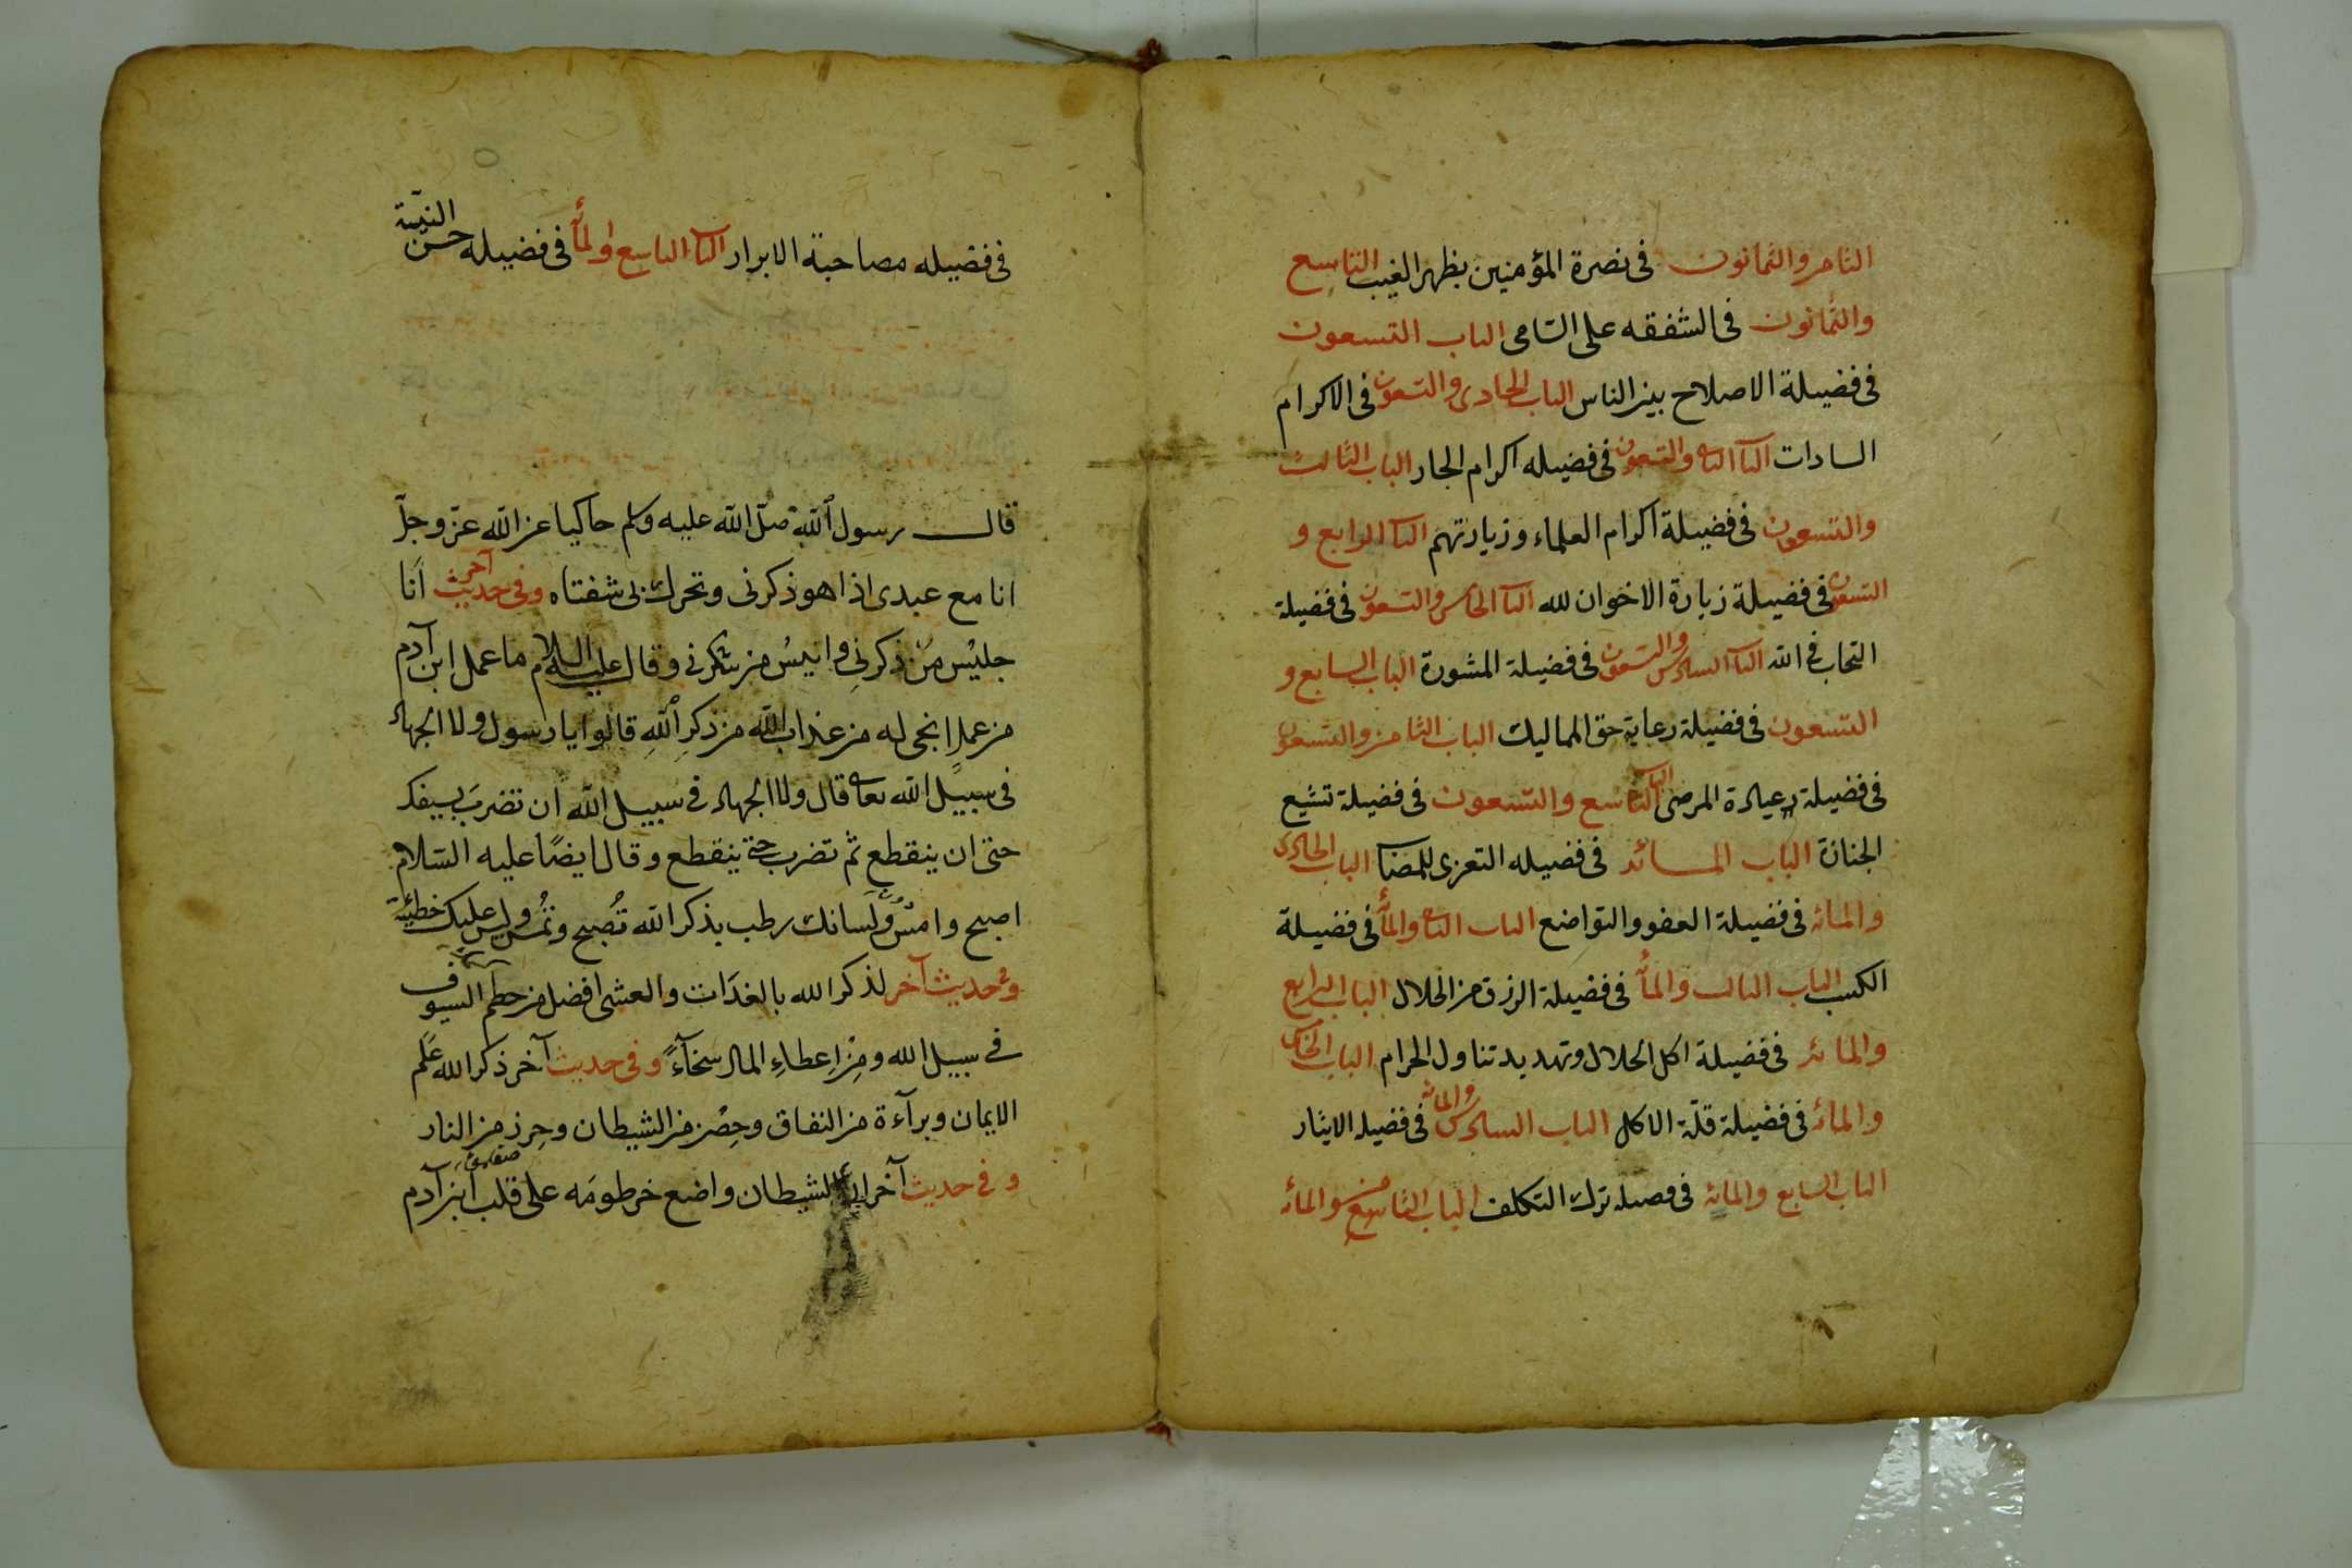 الثامن والثمانون فى نصرة المؤمنين بظهر الغيب التاسع
والثمانون فى الشفقه على اليتامى الباب التسعون
فى فضيلة الاصلاح بين الناس الباب الحادى والتسعون فى الاكرام
السادات البا الثانى والتسعون فى فضيله اكرام الجار الباب الثالث
والتسعون فى فضيلة اكرام العلماء وزيارتهم البا الرابع و
التسعون فى فضيلة زيارة الاخوان لله البا الخامس والتسعون فى فضيلة
التحاب فى الله البا السادس والتسعون فى فضيلة المشورة الباب السابع و
التسعون فى فضيلة رعاية حق المماليك الباب الثامن والتسعون
فى فضيلة عيادة المرضى الباب التاسع والتسعون فى فضيلة تشيع
الجنازة الباب المائه فى فضيله التعزى للمصاب الباب الحادى
والمائه فى فضيلة العفو والتواضع الباب الثانى والمائه فى فضيلة
الكسب الباب الثالث والمائه فى فضيلة الرزق من الحلال الباب الرابع
والمائه فى فضيلة اكل الحلال وتهديد تناول الحرام الباب الخامس
والمائه فى فضيلة قلّة الاكل الباب السادس والمائه فى فضيله الايثار
الباب السابع والمائه فى فضيله ترك التكلف الباب الثامن والمائه
فى فضيله مصاحبة الابرار البا التاسع والمائه فى فضيله حسن النيّة
قال رسول الله صلّى الله عليه وسلم حاكيا عن الله عزّ وجلّ
انا مع عبدى اذا هو ذكرنى وتحرك بى شفتاه وفى حديث آخر أنا
جليس من ذكرنى وانيس من شكرنى وقال عليه السلام ما عمل ابن آدم
من عملٍ انجى له من عذاب الله من ذكر الله قالوا يا رسول ولا الجهاد
فى سبيل الله تعالى قال ولا الجهاد فى سبيل الله ان تضرب بسيفك
حتى ان ينقطع ثم تضرب حتى ينقطع وقال ايضًا عليه السّلام
اصبح وامس ولسانك رطب بذكر الله تُصبح وتُمس وليس عليك خطيئة
وفى حديث آخر لذكر الله بالغدات والعشى افضل من حطم السيوف
فى سبيل الله ومن اعطاءِ المال سخآءً وفى حديث آخر ذكر الله عَلَم
الايمان وبرآءة من النفاق وحِصْن من الشيطان وحرز من النار
وفى حديث آخر ان الشيطان واضع خرطومَه على قلب ابن آدم